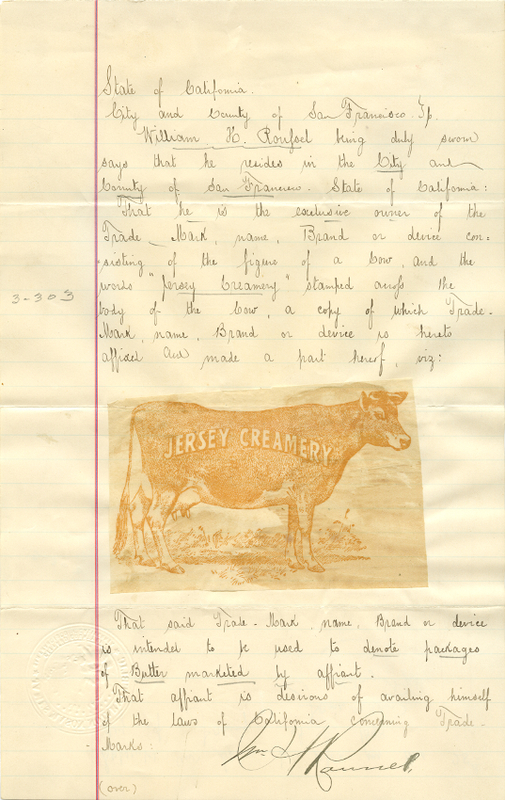 State of California.
City and County of San Francisco.
William H. being duly sworn
says that he resides in the City and
County of San Francisco. State of California:
That he is the exclusive owner of the
Trade-Mark, name, Brand or device con=
sisting of the figure of a Cow, and the
words "Jersey Creamery" stamped across the
3-303
body of the Cow, a copy of which Trade-
Mark, name, Brand or device is hereto
affixed and made a part hereof, viz:
JERSEY CREAMERY
That said Trade-Mark, name, Brand or device
is intended to be used to denote packages
of Butter marketed by affiant.
That affiant is desirous of availing himself
of the laws of California concerning Trade-
Marks:
(over)